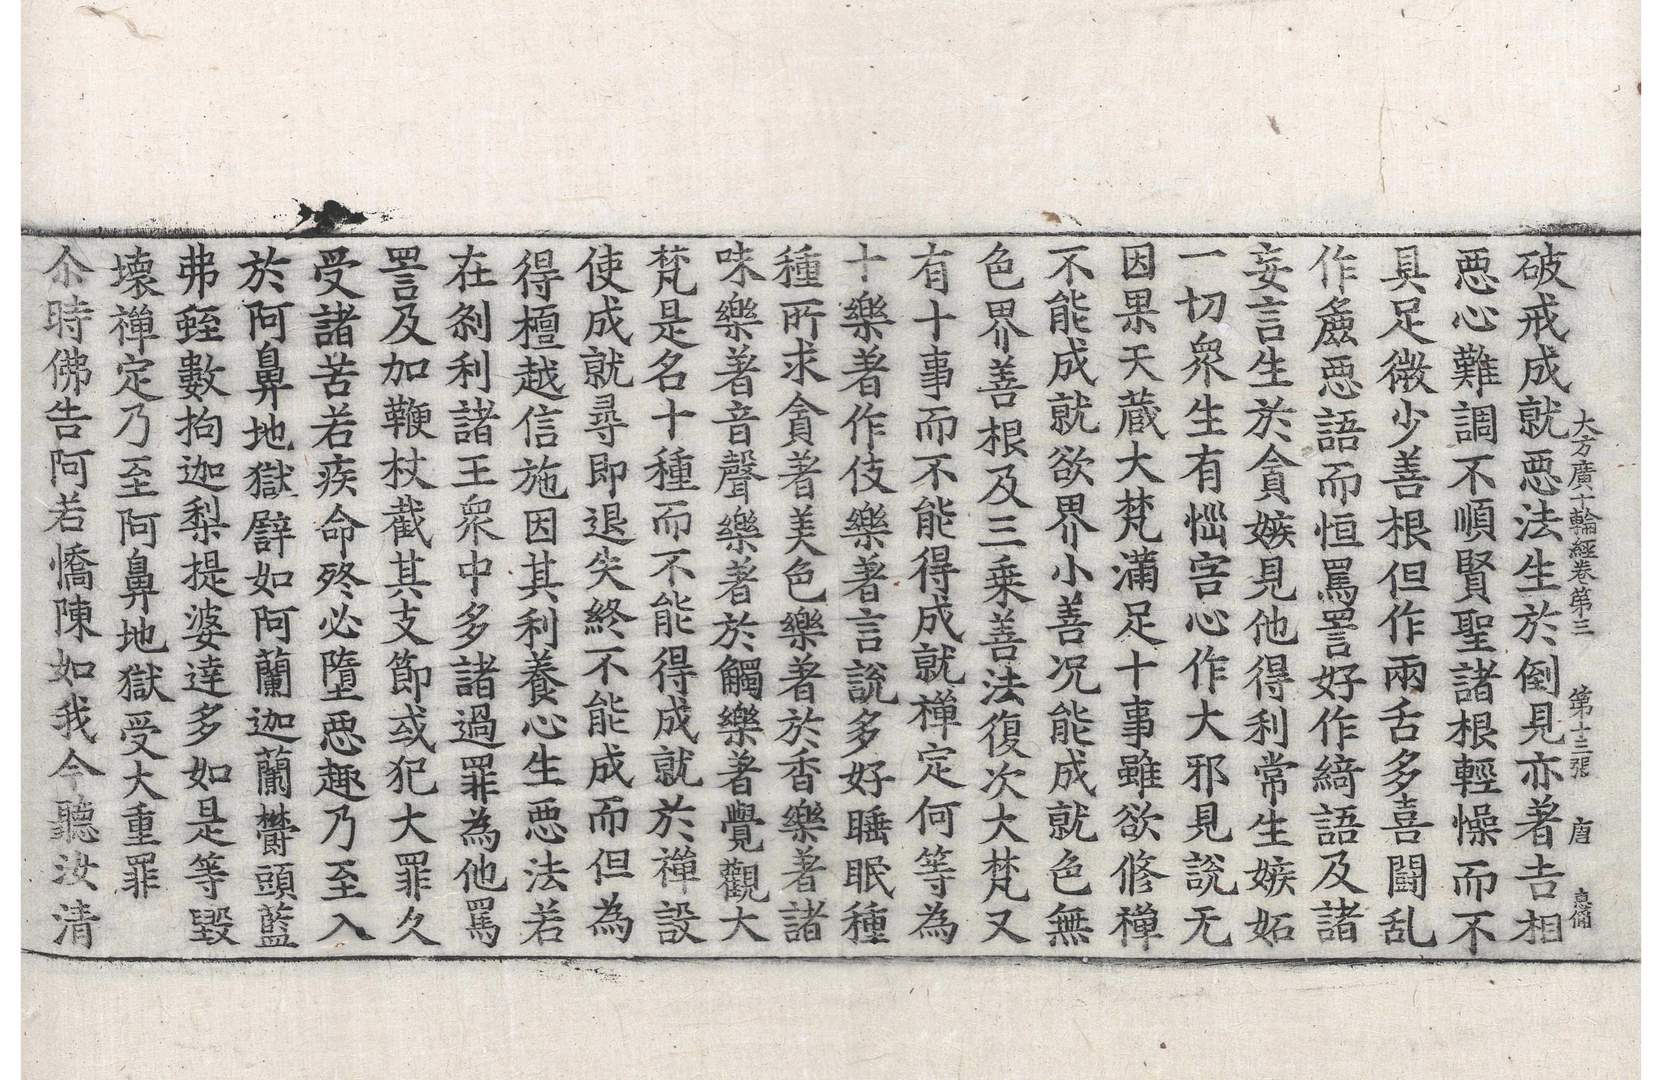 大方廣十輪經卷第三 第十三張 唐 惠備
破戒成就惡法生於倒見亦著吉相
惡心難調不順賢聖諸根輕懆而不
具足微少善根但作兩舌多喜鬪乱
作麁惡語而恒罵詈好作綺語及諸
妄言生於貪嫉見他得利常生嫉妬
一切衆生有惱害心作大邪見說无
因果天蔵大梵滿足十事雖欲修禪
不能成就欲界小善况能成就色無
色界善根及三乘善法復次大梵又
有十事而不能得成就禪定何等為
十樂著作伎樂著言說多好睡眠種
種所求貪著美色樂著於香樂著諸
味樂著音聲樂著於觸樂著覺觀大
梵是名十種而不能得成就於禪設
使成就尋即退失終不能成而但為
得檀越信施因其利養心生惡法若
在刹利諸王衆中多諸過罪為他罵
詈及加鞭杖截其支節或犯大罪久
受諸苦若疾命終必墮惡趣乃至入
於阿鼻地獄譬如阿蘭迦蘭欝頭藍
弗蛭數拘迦梨提婆達多如是等毀
壞禪定乃至阿鼻地獄受大重罪
尒時佛告阿若憍陳如我今聽汝清